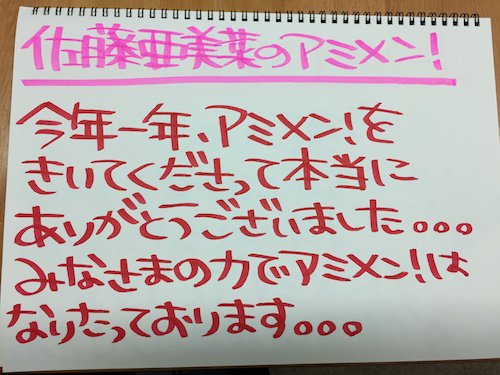 佐藤亜美菜のアミメン!
今年一年、アミメン!を
きいてくださって本当に
ありがとうございました。。。
みなさまの力でアミメン!は
なりたっております。。。